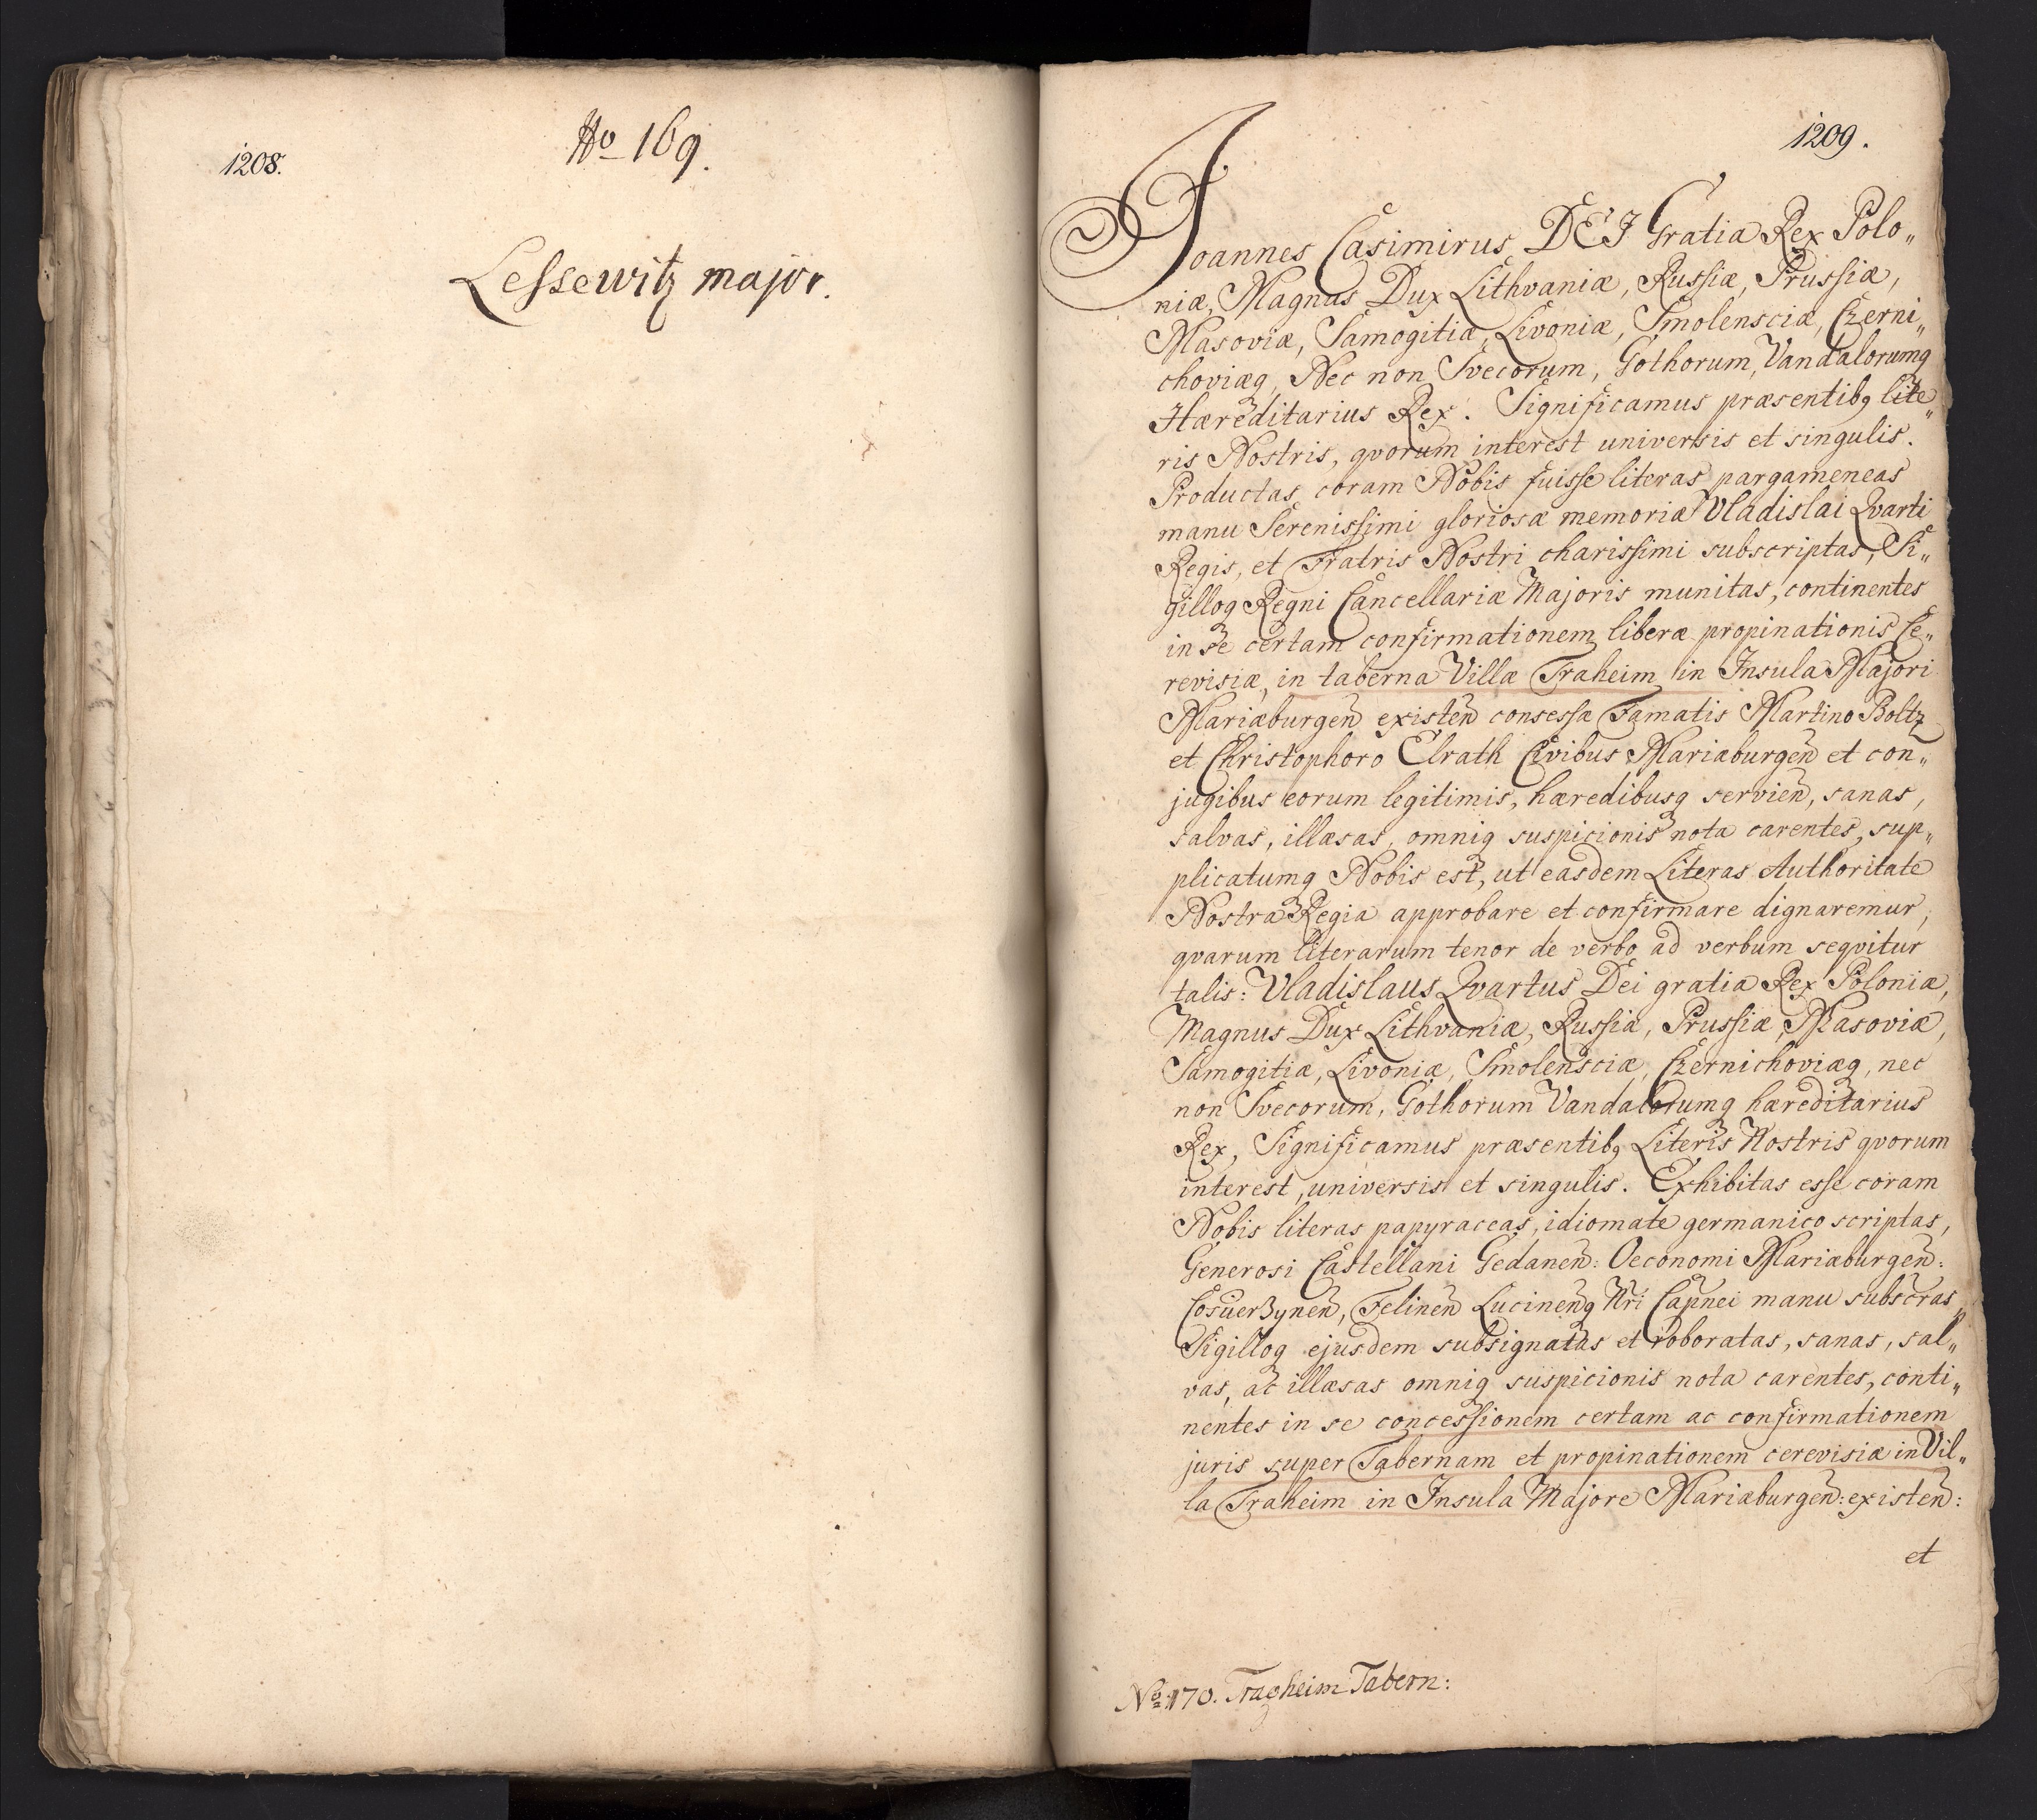 1208.
No 169.
Lessewitz major.
1209.
Joannes Casimirus DEJ Gratia Rex Polo„
niæ, Magnus Dux Lithvaniæ, Russiæ, Prussiæ,
Masoviæ, Samogitiæ, Livoniæ, Smolensciæ, Czerni„
choviæq, Nec non Svecorum, Gothorum, Vandalorumq
Hæreditarius Rex. Significamus præsentibq lite„
ris Nostris, qvorum interest universis et singulis.
Productas coram Nobis fuisse literas pargameneas
manu Serenissimi gloriosæ memoriæ Vladislai Qvarti
Regis, et Fratris Nostri charissimi subscriptas, Si„
gilloq Regni Cancellariæ Majoris munitas, continentes
in se certam confirmationem liberæ propinationis Ce„
revisiæ, in taberna Villæ Traheim in Insula Majori
Mariæburgen existen consessæ Famatis Martino Boltz
et Christophoro Elrath Civibus Mariæburgen et con„
jugibus eorum legitimis, hæredibusq servien, sanas,
salvas, illæsas, omniq suspicionis nota carentes, sup„
plicatumq Nobis est, ut easdem Literas Authoritate
Nostra Regia approbare et confirmare dignaremur,
qvarum literarum tenor de verbo ad verbum seqvitur
talis: Vladislaus Qvartus Dei gratia Rex Poloniæ,
Magnus Dux Lithvaniæ, Russiæ, Prussiæ, Masoviæ,
Samogitiæ, Livoniæ, Smolensciæ, Czernichoviæq, nec
non Svecorum, Gothorum Vandalorumq hæreditarius
Rex, Significamus præsentibq Literis Nostris qvorum
interest, universis et singulis. Exhibitas esse coram
Nobis literas papyraceas, idiomate germanico scriptas,
Generosi Castellani Gedanen: Oeconomi Mariæburgen:
Felinen Lucinenq Nri manu subscras
Sigilloq ejusdem subsignatas et roboratas, sanas, sal„
vas, ac illæsas omniq suspicionis nota carentes, conti„
nentes in se concessionem certam ac confirmationem
juris super Tabernam et propinationem cerevisiæ in Vil„
la Traheim in Insula Majore Mariæburgen: existen:
et
No 170. Tragheim Tabern: